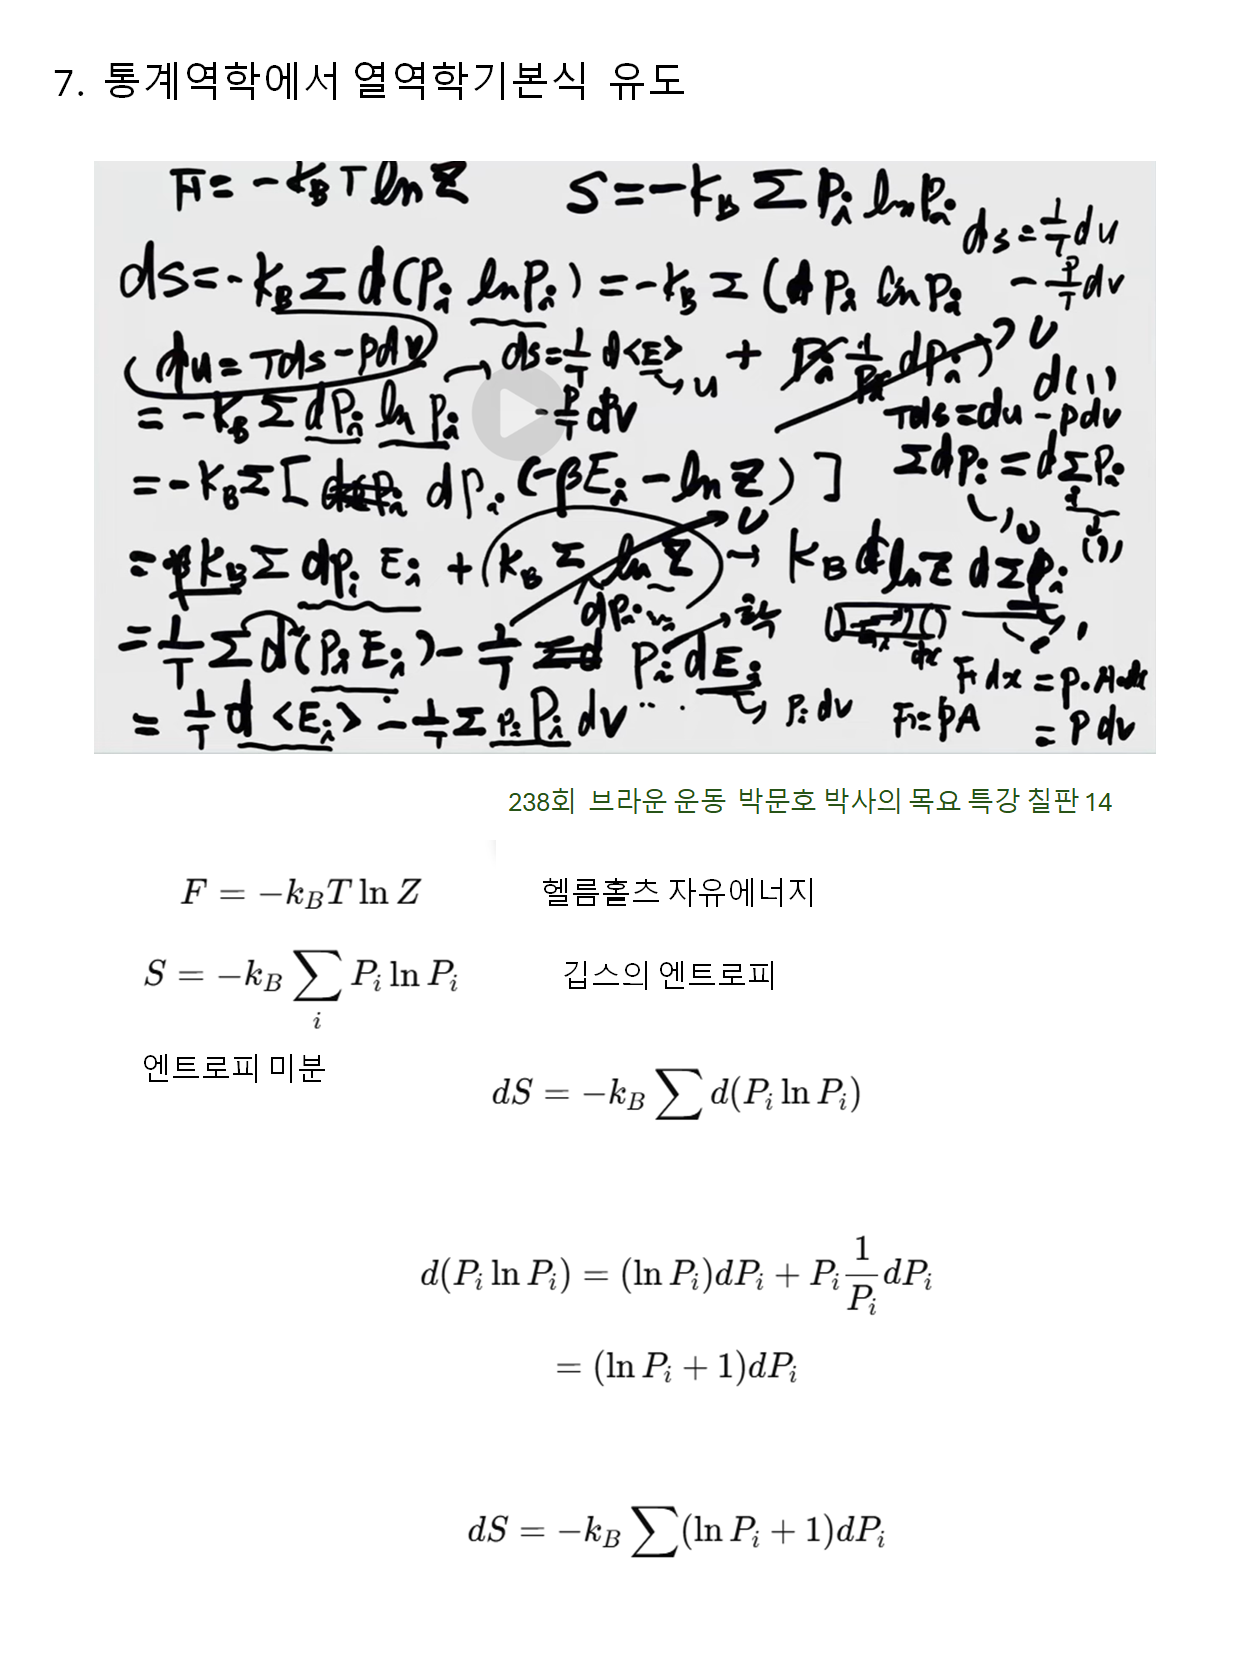 7. 통계역학에서 열역학기본식 유도
F = -k_B T ln Z    S = -k_B Σ P_i ln P_i
ds = 1/T du
- P/T dv
ds = -k_B Σ d(P_i ln P_i) = -k_B Σ (dP_i ln P_i
+ P_i 1/P_i dP_i) → 0
(du = Tds - pdv    ds = 1/T d<E> → u
- P/T dv
d(1)
Tds = du - pdv
= -k_B Σ dP_i ln P_i
Σ dP_i = d Σ P_i
= -k_B Σ [ dP_i (-βE_i - ln Z) ]
= k_B Σ dP_i E_i + (k_B Σ ln Z) → k_B ln Z d Σ P_i
dP_i
= 1/T Σ d(P_i E_i) - 1/T Σ P_i dE_i
→ P_i dv
F dx = p·A·dx
F = pA
= p dv
= 1/T d <E_i> - 1/T Σ P_i P_i dv
238회 브라운 운동 박문호 박사의 목요 특강 칠판 14
F = -k_B T ln Z    헬름홀츠 자유에너지
S = -k_B Σ_i P_i ln P_i    깁스의 엔트로피
엔트로피 미분
dS = -k_B Σ d(P_i ln P_i)
d(P_i ln P_i) = (ln P_i)dP_i + P_i 1/P_i dP_i
= (ln P_i + 1)dP_i
dS = -k_B Σ(ln P_i + 1)dP_i